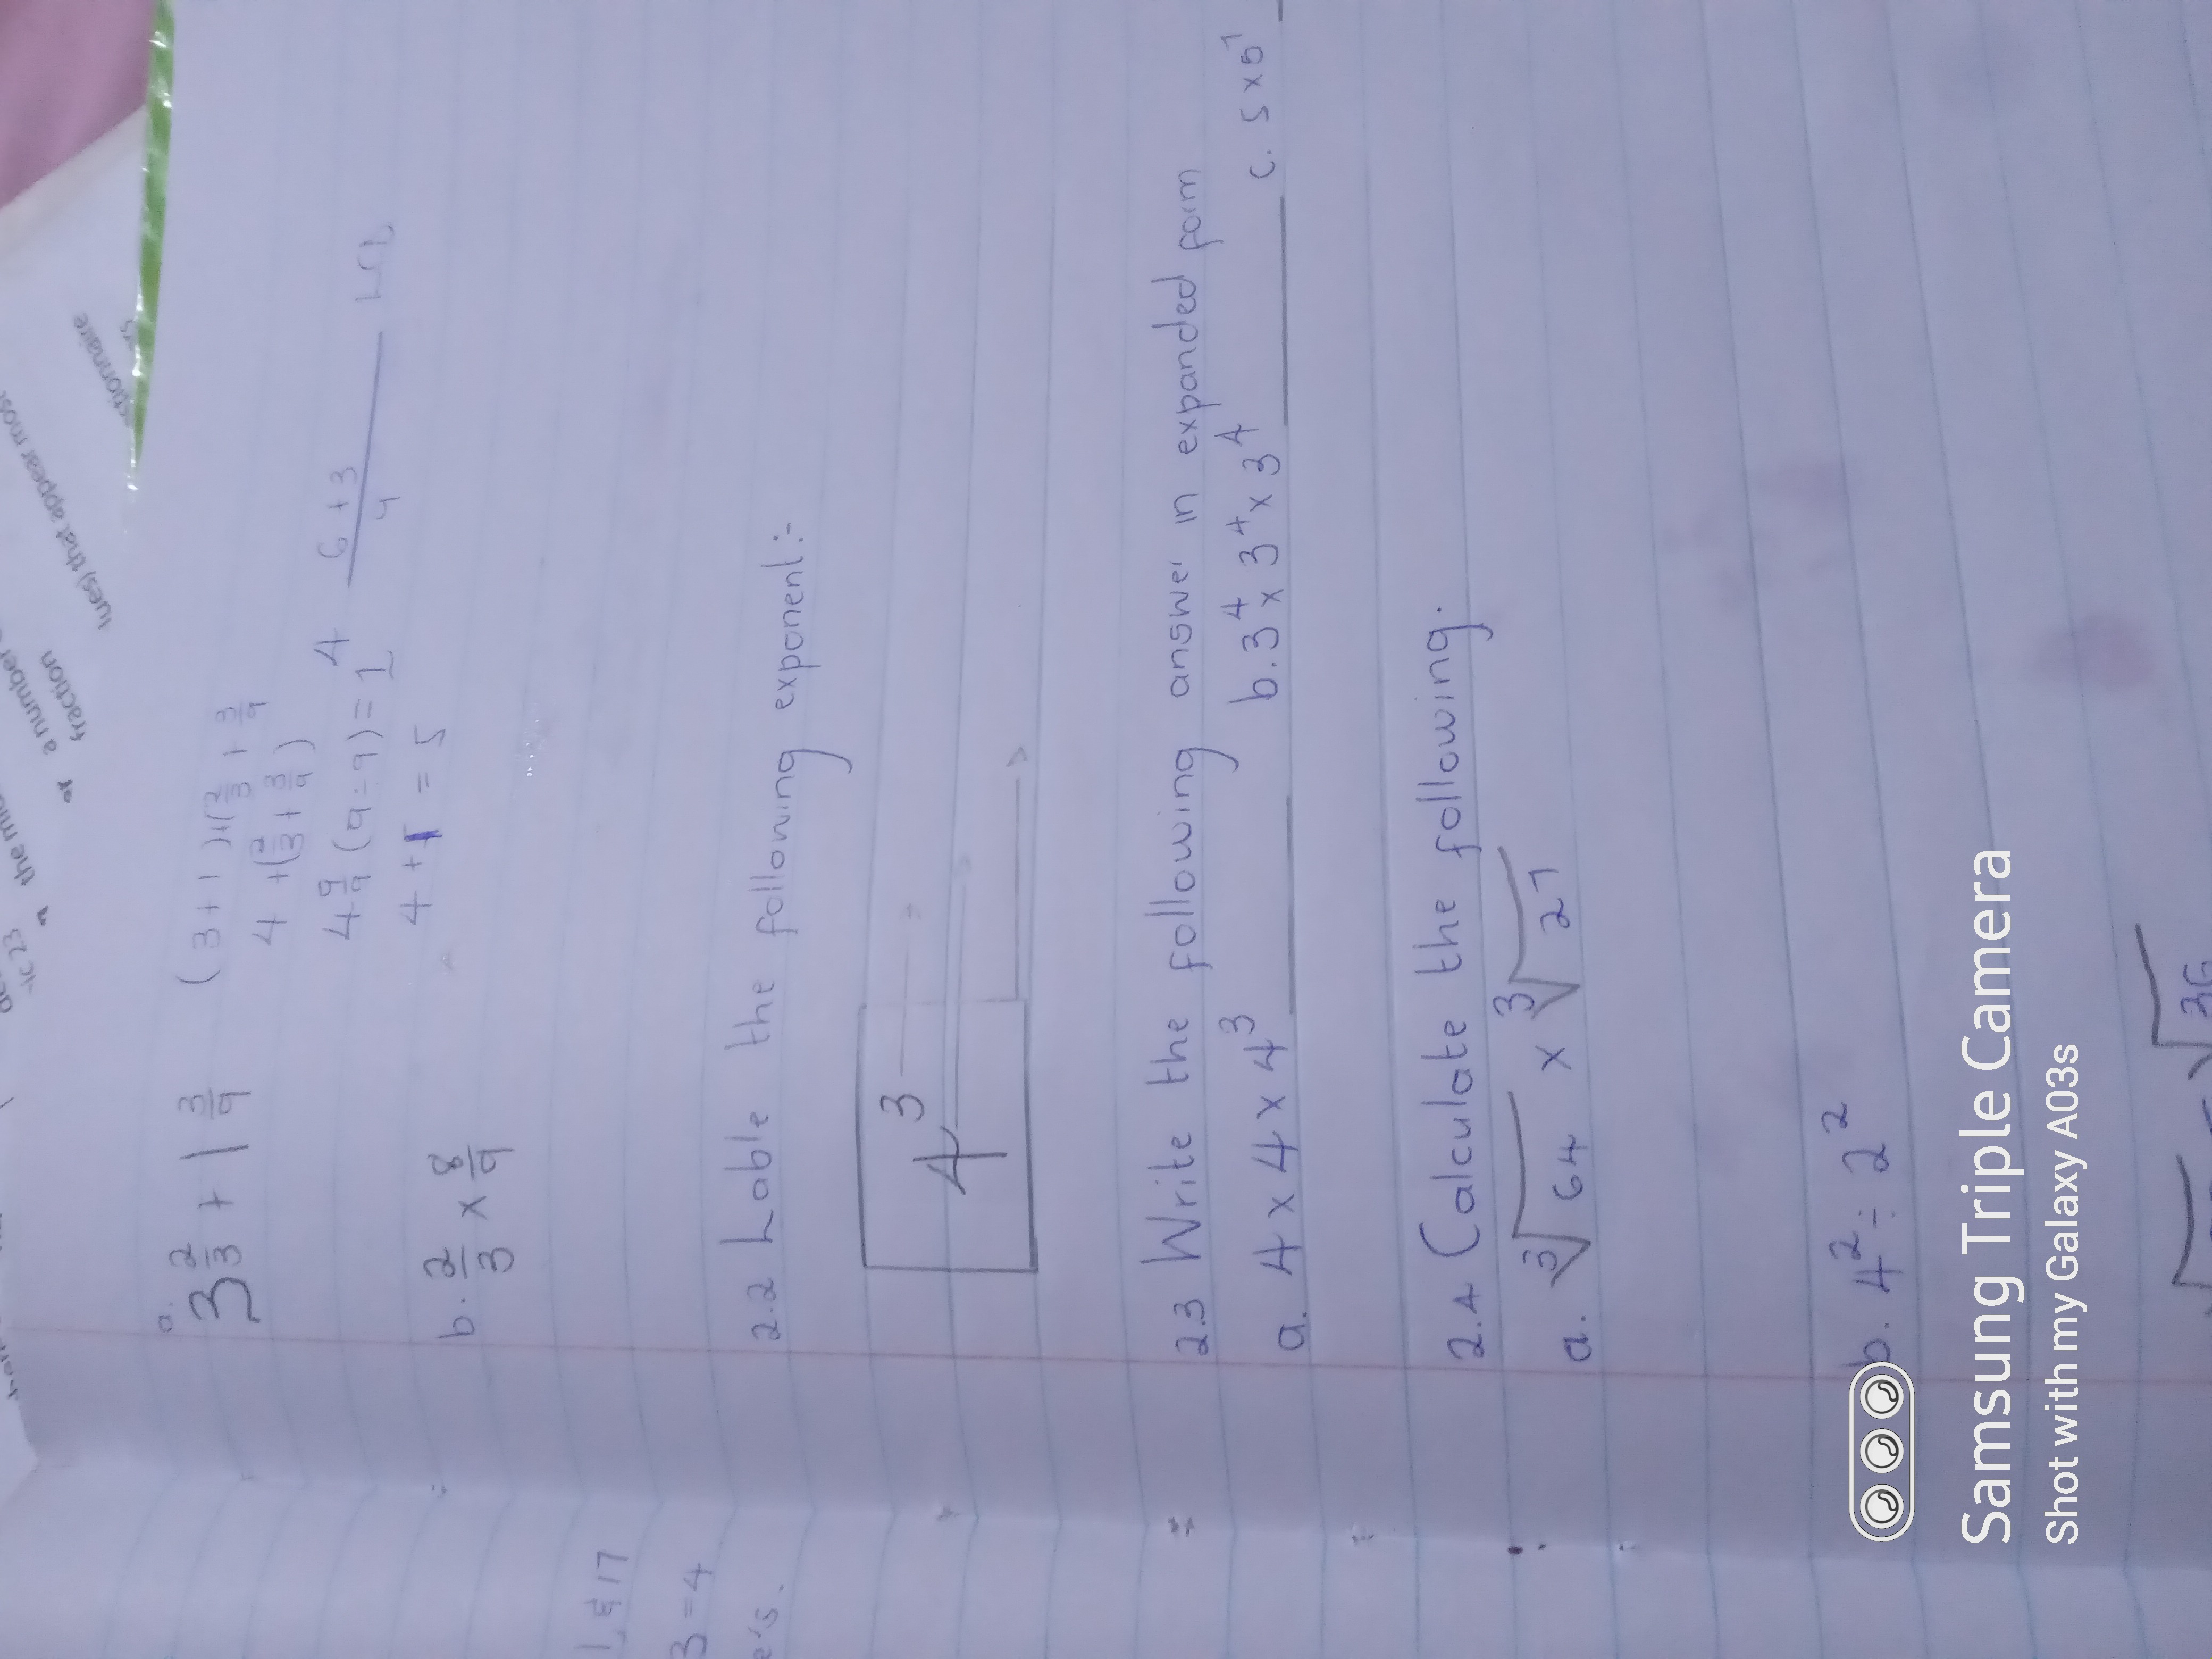 ic 23
the
a number
fraction
lues) that appear most
stionnaire
rs
a.
3 2/3 + 1 3/9 (3+1)+(2/3 + 3/9
4 +(2/3 + 3/9)
4 9/9 (9÷9)=1 4 6+3/9
4 + 1 = 5
b. 2/3 x 8/9
1, & 17
3 = 4
e's.
2.2 Lable the following exponent:-
4³
2.3 Write the following answer in expanded form
a. 4 x 4 x 4³ ______ b. 3⁴ x 3⁴ x 3⁴ ______ c. 5 x 5⁷ _
2.4 Calculate the following.
a. ∛64 x ∛27
b. 4² ÷ 2²
Samsung Triple Camera
Shot with my Galaxy A03s
√36